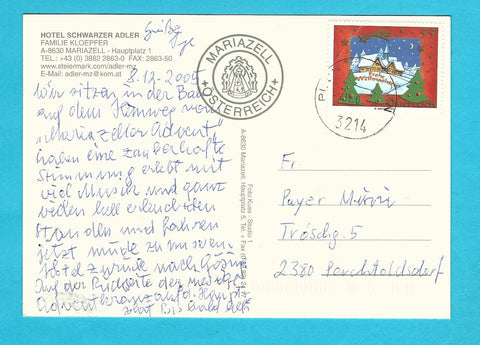 HOTEL SCHWARZER ADLER
FAMILIE KLOEPFER
A-8630 MARIAZELL - Hauptplatz 1
TEL.: +43 (0) 3882 2863-0 FAX: 2863-50
www.steiermark.com/adler-mz
E-Mail: adler-mz@kom.at
8.12.2009
Wir sitzen in der
auf dem Heimweg vom
"Mariazeller Advent"
haben eine zauberhafte
Stimmung erlebt mit
viel Musik und ganz
vielen hell erleuchteten
Standen und fahren
jetzt müde zu unserem
Hotel zurück nach
Auf der Rückseite der
Adventkranz auf d.
bis bald
MARIAZELL
ÖSTERREICH
Foto Kuss - Studio 1
A-8630 Mariazell, Hauptplatz 5, Tel. + Fax
55
Frohe Weihnachten
3214
Fr.
Payer
5
2380 Perchtoldsdorf